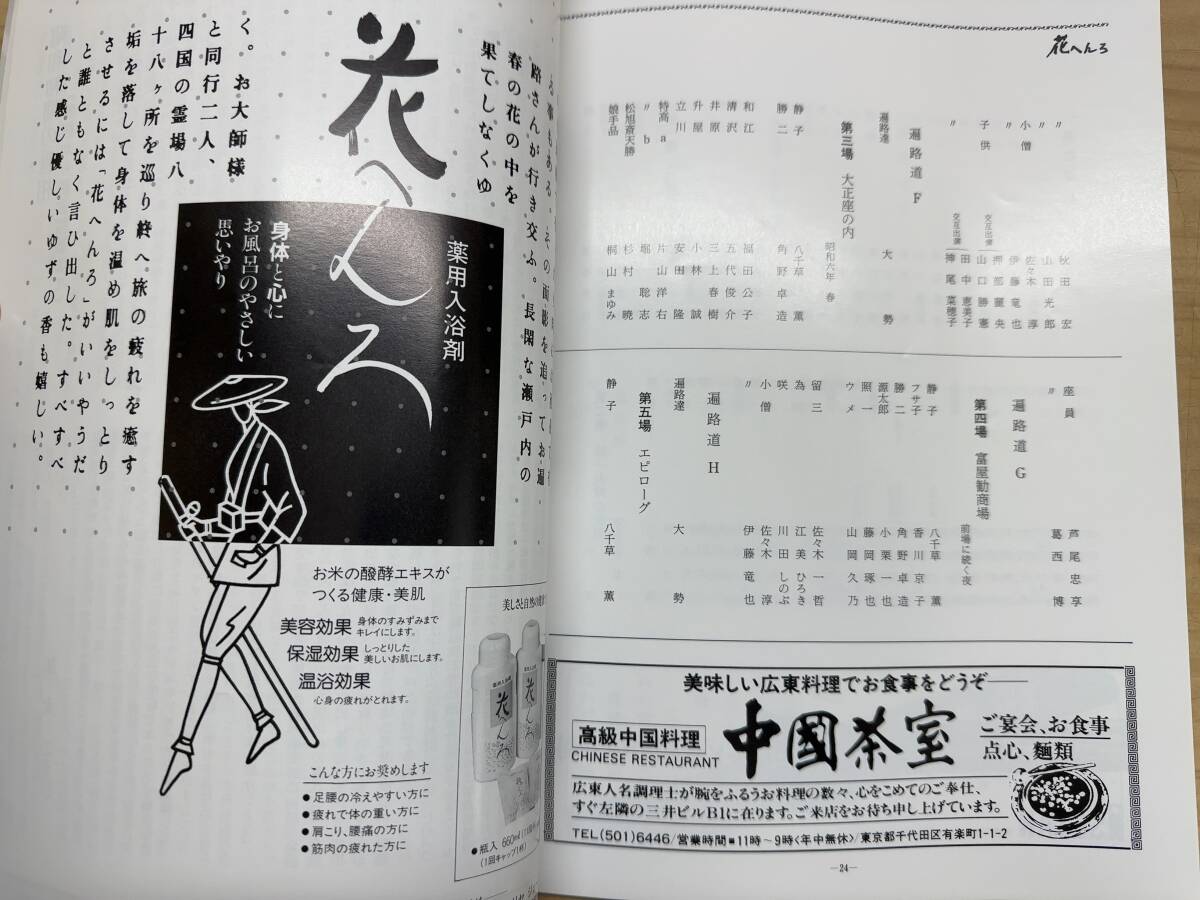 花へんろ
〃 秋田宏
〃 山田光郎
小僧 佐々木淳
〃 伊藤竜也
子供 交互出演 押部麗央
山口勝憲
〃 交互出演 田中恵美子
神尾菜穂子
遍路道 F
遍路達 大勢
第三場 大正座の内
昭和六年 春
静子 八千草薫
勝二 角野卓造
和江 福田公子
清沢 五代俊介
井原 三上春樹
升屋 小林誠
立川 安田隆
特高a 片山洋右
〃b 堀聡志
松旭斎天勝 杉村暁
娘手品 桐山まゆみ
座員 芦尾忠享
〃 葛西博
遍路道 G
第四場 富屋勧商場
前場に続く夜
静子 八千草薫
フサ子 香川京子
勝二 角野卓造
源太郎 小栗一也
照一 藤岡琢也
ウメ 山岡久乃
留三 佐々木一哲
為 江美ひろき
咲 川田しのぶ
小僧 佐々木淳
〃 伊藤竜也
遍路道 H
遍路達 大勢
第五場 エピローグ
静子 八千草薫
美味しい広東料理でお食事をどうぞ──
高級中国料理
CHINESE RESTAURANT
中國茶室
ご宴会、お食事
点心、麺類
広東人名調理士が腕をふるうお料理の数々、心をこめてのご奉仕、
すぐ左隣の三井ビルB1に在ります。ご来店をお待ち申し上げています。
TEL(501)6446/営業時間=11時〜9時〈年中無休〉/東京都千代田区有楽町1-1-2
—24—
路さんが行き交ふ。長閑な瀬戸内の
春の花の中を
果てしなくゆ
花へんろ
く。お大師様
と同行二人、
四国の霊場八
十八ヶ所を巡り終へ旅の疲れを癒す
垢を落して身体を温め肌をしっとり
させるには「花へんろ」がいいやうだ
と誰ともなく言ひ出した。すべすべ
した感じ優しいゆずの香も嬉しい。
薬用入浴剤
身体と心に
お風呂のやさしい
思いやり
お米の醗酵エキスが
つくる健康・美肌
美容効果 身体のすみずみまで
キレイにします。
保湿効果 しっとりした
美しいお肌にします。
温浴効果
心身の疲れがとれます。
こんな方にお奨めします
●足腰の冷えやすい方に
●疲れで体の重い方に
●肩こり、腰痛の方に
●筋肉の疲れた方に
美しさと自然の
花へんろ
花へんろ
●瓶入 660ml
(1回キャップ1杯)